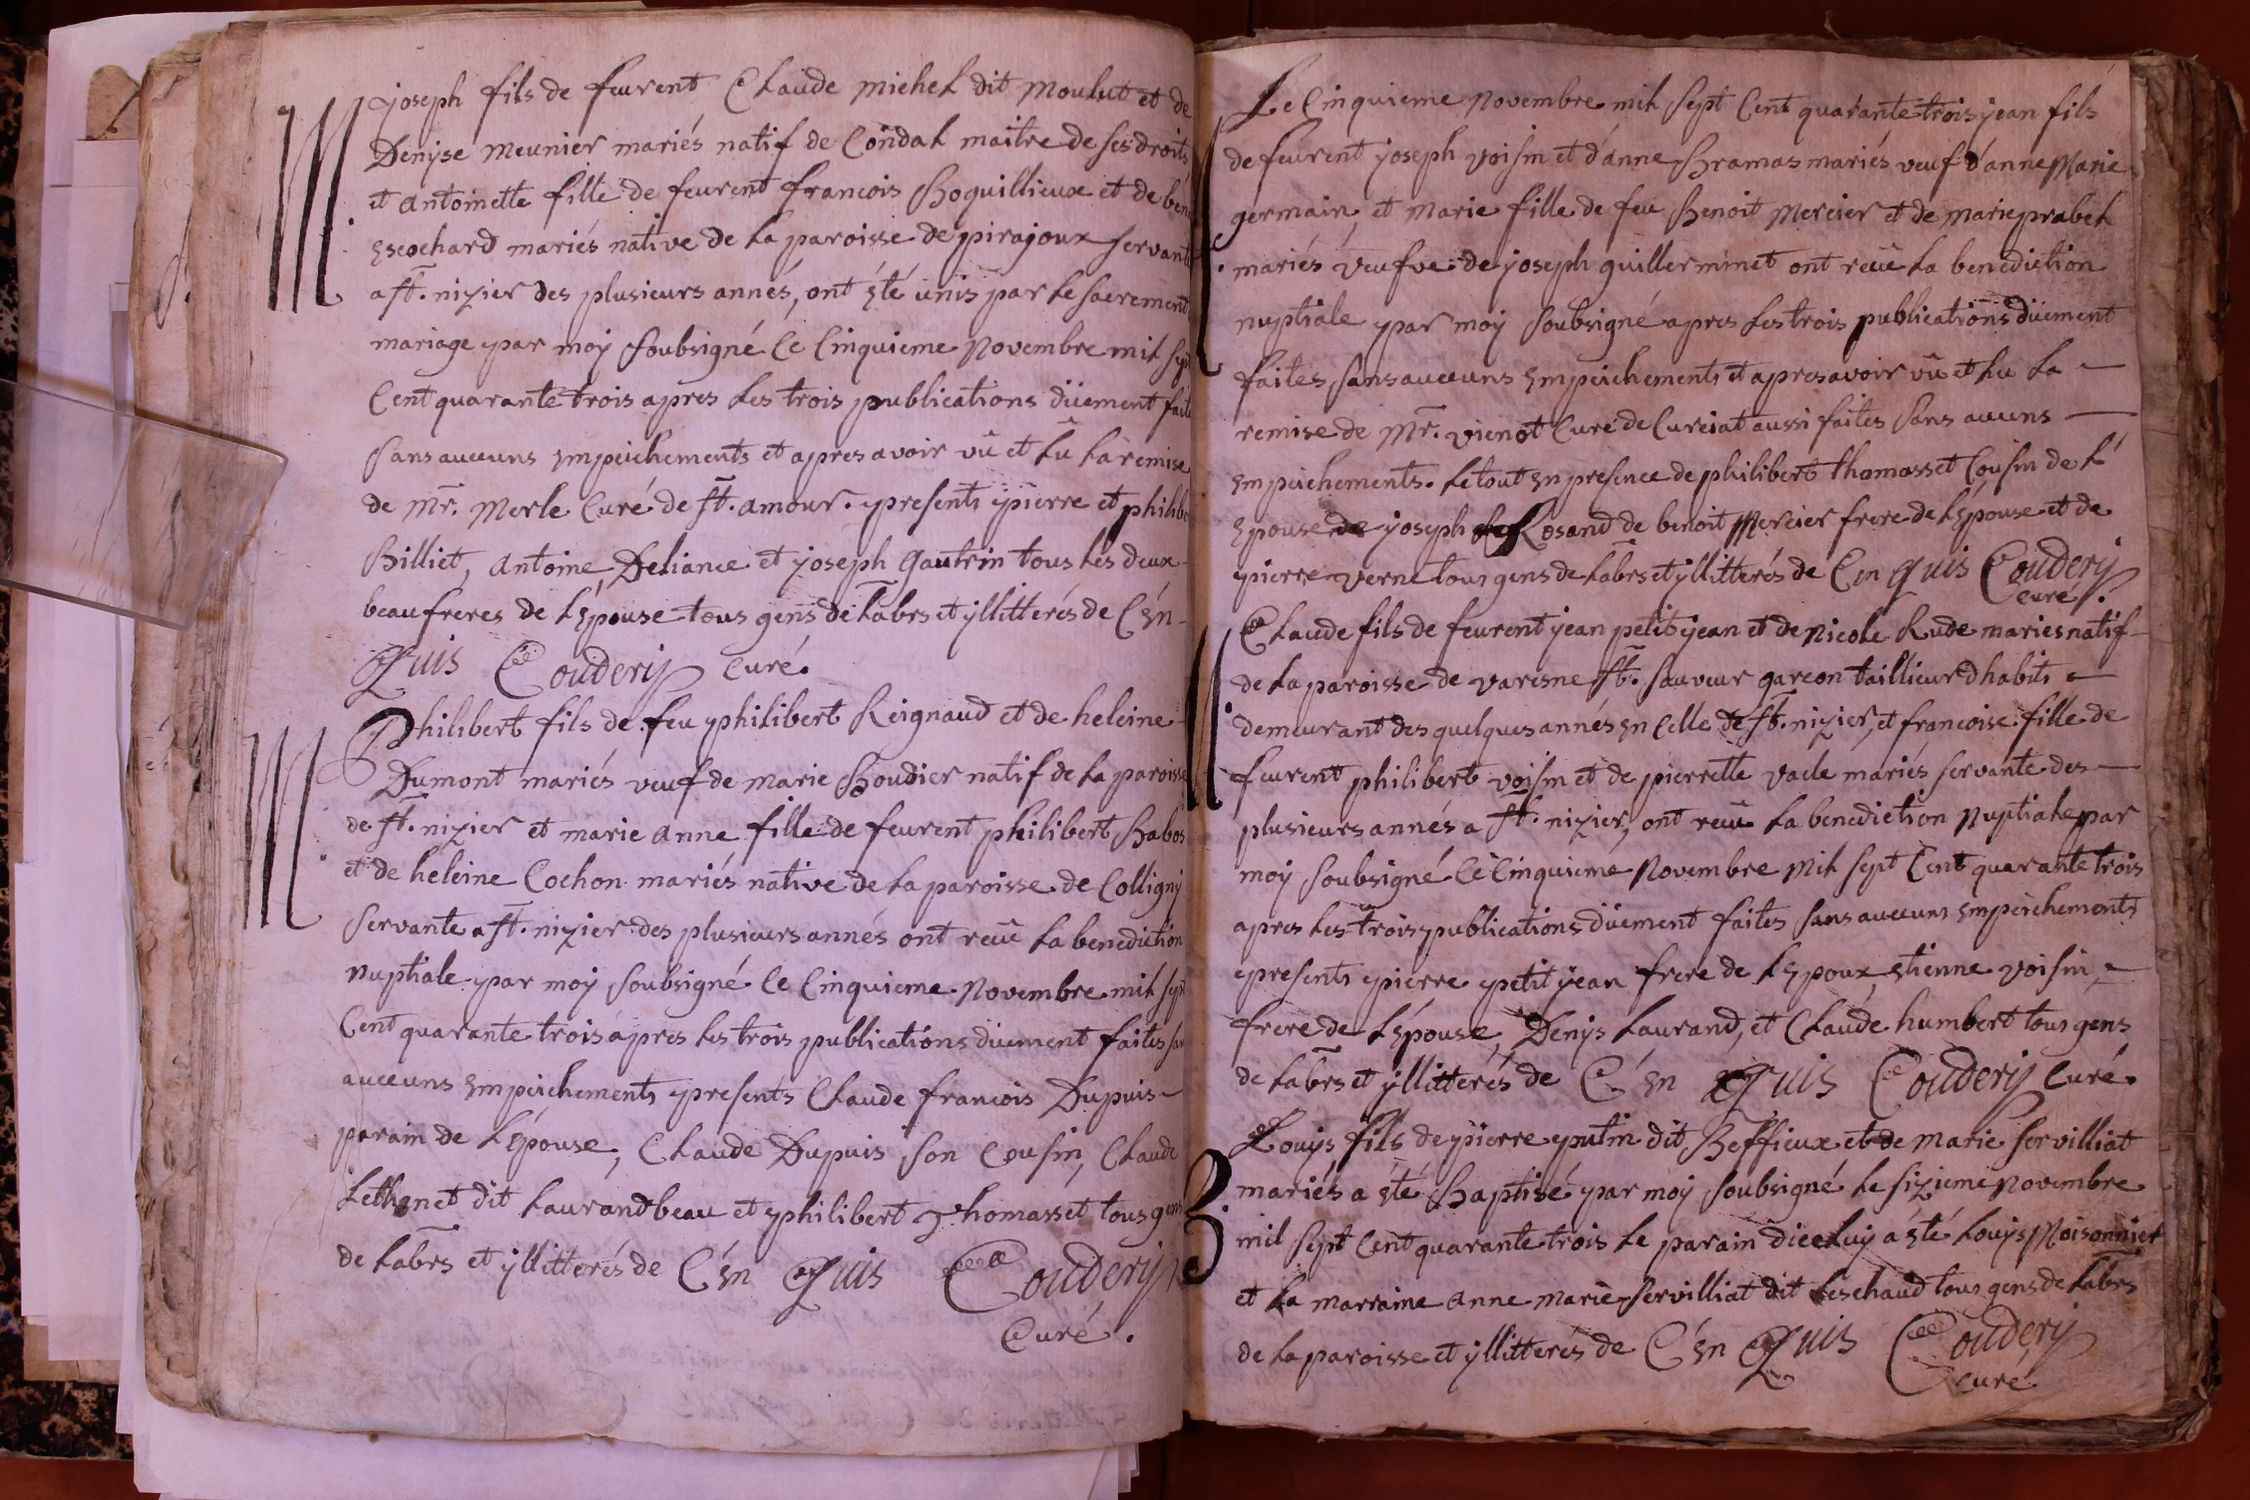 M
joseph fils de feurent Claude michel dit moulut et de
Denÿse meunier mariés natif de Condal maitre de ses droits
et antoinette fille de feurent francois Boquillieux et de
escochard mariés native de la paroisse de pirajoux servante
a st. nizier des plusieurs annés, ont été unis par le sacrement
mariage par moÿ soubsigné le Cinquieme Novembre mil sept
Cent quarante trois apres les trois publications düement faites
sans aucuns empeichements et apres avoir vû et lû la remise
de Mr. Merle Curé de st. amour. presents pierre et philibe
Billiet, antoine Deliance et joseph Gautrin tous les deux
beaufreres de l'épouse tous gens de labrs et ÿllitterés de C'én
Quis Couderÿ Curé.
M
Philibert fils de feu philibert Reignaud et de heleine
Dumont mariés veuf de marie Boudier natif de la paroisse
de st. nizier et marie anne fille de feurent philibert
et de heleine Cochon mariés native de la paroisse de Collignÿ
servante a st. nizier des plusieurs annés ont recû la benediction
nuptiale par moÿ soubsigné le Cinquieme Novembre mil sept
Cent quarante trois apres les trois publications düement faites
aucuns empeichements presents Claude francois Dupuis
parain de l'épouse, Claude Dupuis son Cousin, Claude
dit laurandbeau et philibert Thomasset tous gens
de labrs et ÿllitterés de C'én Quis Couderÿ
Curé.
M
Le Cinquieme Novembre mil sept Cent quarante trois jean fils
de feurent joseph voisin et d'anne Bramas mariés veuf d'anne Marie
germain, et Marie fille de feu Benoit Mercier et de marie prabel
mariés veufve de joseph guillerminet ont recû la benediction
nuptiale par moÿ soubsigné apres les trois publications düement
faites, sans aucuns empeichements et apres avoir vû et lu la
remise de Mr. vienot Curé de Curciat aussi faites sans aucuns
empeichements. le tout en presence de philibert thomasset Cousin de l'
epouse de joseph Rosand de benoit Mercier frere de l'épouse et de
pierre verne tous gens de labrs et ÿllitterés de C'en Quis Couderÿ
curé.
M
Claude fils de feurent jean petitjean et de Nicole Rude mariés natif
de la paroisse de varesne st. sauveur garcon taillieur d'habits
demeurant des quelques annés en celle de st. nizier, et francoise fille de
feurent philibert voisin et de pierrette vacle mariés servante des
plusieurs annés a st. nizier, ont recû la benediction Nuptiale par
moÿ soubsigné le Cinquieme Novembre Mil sept Cent quarante trois
apres les trois publications düement faites sans aucuns empeichements
presents pierre petitjean frere de l'époux, étienne voisin,
frere de l'épouse, Denÿs laurand, et Claude humbert tous gens
de labrs et ÿllitterés de C'én Quis Couderÿ Curé.
B
Louÿs fils de pierre putin dit Beffieux et de Marie servilliat
mariés a été Baptisé par moÿ soubsigné le sizieme Novembre
mil sept Cent quarante trois le parain d'iceluÿ a été Louÿs Moisonnier
et la marraine anne marie servilliat dit leschaud tous gens de labrs
de la paroisse et ÿllitterés de C'én Quis Couderÿ
curé